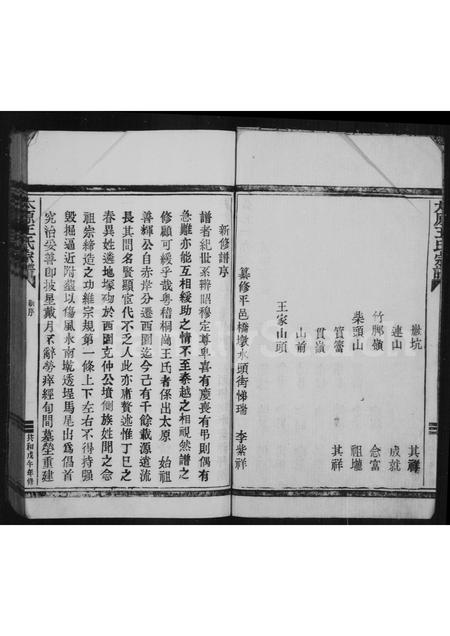 太原王氏宗譜
嶽坑 其祥
連山 成就
竹脚嶺 念富
柴頭山 祖壠
管簹 其祥
貫嶺
山前
王家山頭
纂修平邑橋墩水頭街悌瑞 李紫祥
新修譜序
譜者紀世系辨昭穆定尊卑喜有慶喪有弔則偶有
急難亦能互相緩助之情不至秦越之相視然譜之
修顧可緩乎哉粤稽桐崗王氏者係出太原 始祖
善輝公自赤岸分遷西園迄今已有千餘載源遠流
長其間名賢顯宦代不乏人此亦甭贅述惟丁巳之
春異姓遷地塚功於西園克仲公墳側族姓聞之念
祖宗締造之功維宗規第一條上下左右不得持强
毀掘逼近附塟以傷風水南壠透埕馬尾出為倡首
究治妥善印披星戴月不辭勞瘁經旬間墓塋重建
太原王氏宗譜
新序
共和戊午年修